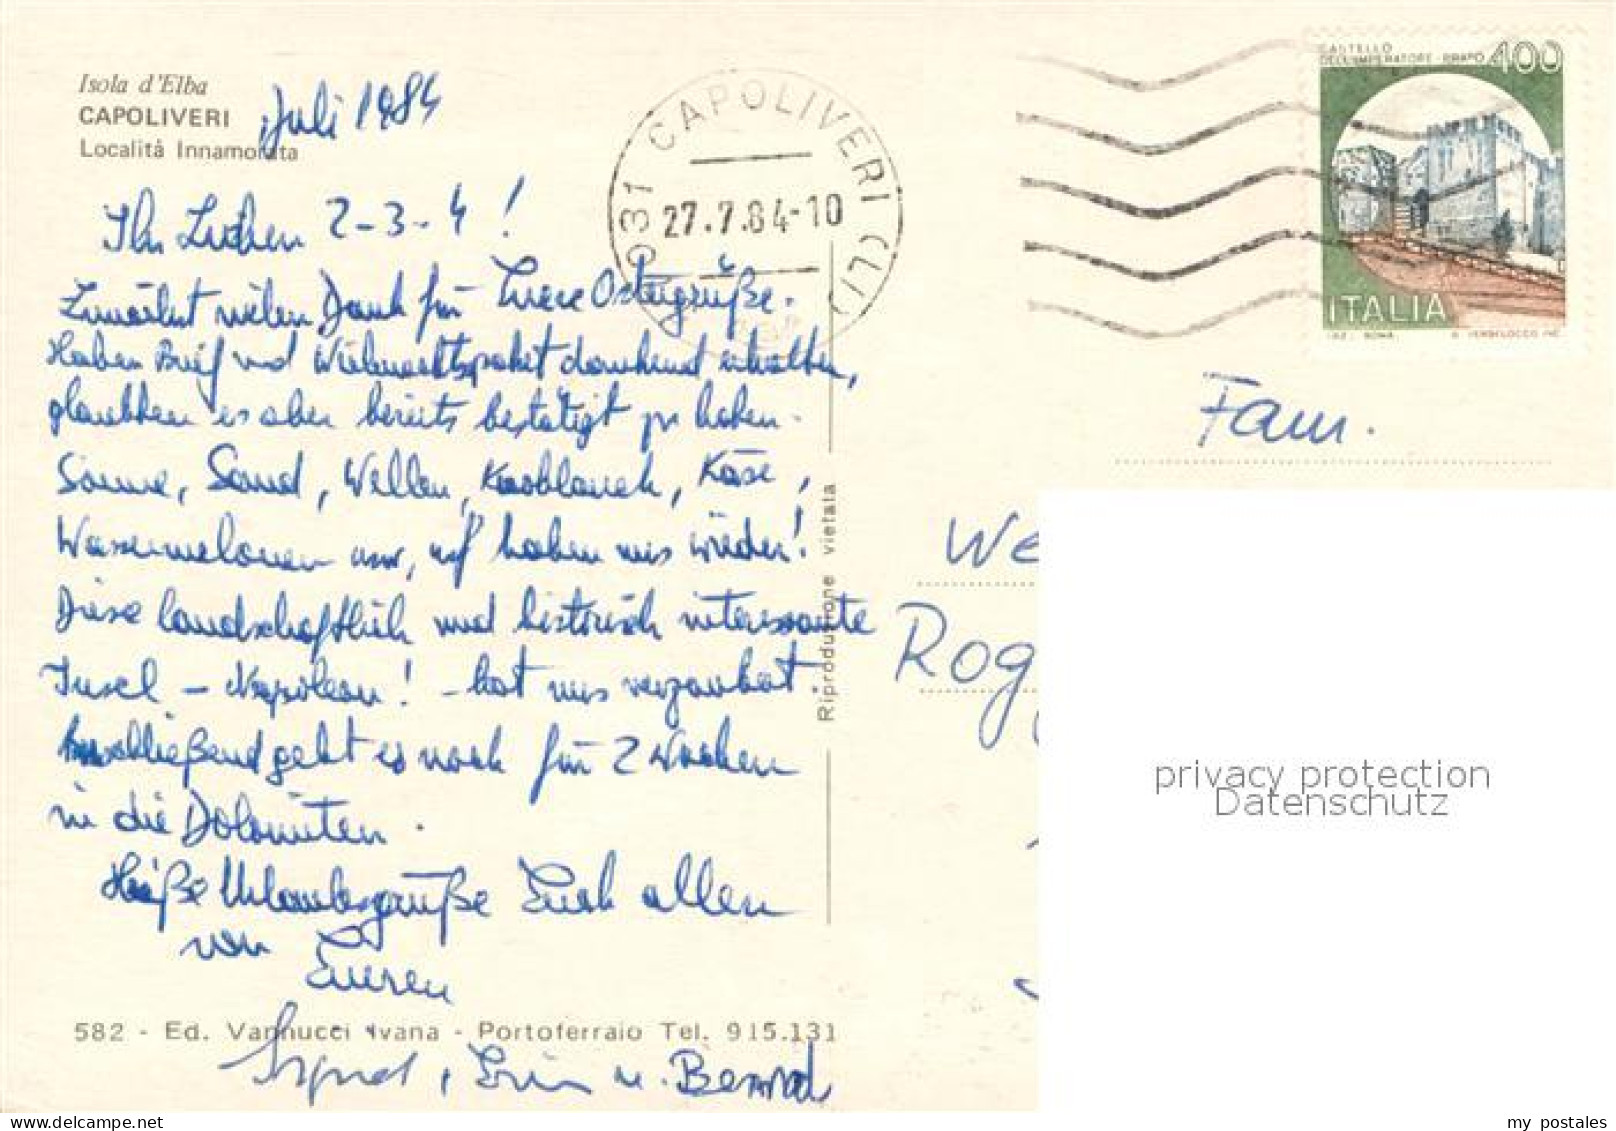 Isola d'Elba
CAPOLIVERI
Località Innamorata
Juli 1984
Ihr Lieben 2-3-4!
Zunächst vielen Dank für Euere Ostergrüße.
Haben Brief und Weihnachtspaket dankend erhalten,
glaubten es aber bereits bestätigt zu haben.
Sonne, Sand, Wellen, Knoblauch, Käse,
Wassermelonen usw. haben uns wieder!
Diese landschaftlich und historisch interessante
Insel - Napoleon! - hat uns verzaubert.
Anschließend geht es noch für 2 Wochen
in die Dolomiten.
Heiße Urlaubsgrüße Euch allen
von Eueren
u. Bernd
582 - Ed. Vannucci Ivana - Portoferraio Tel. 915.131
Riproduzione vietata
CAPOLIVERI (LI)
27.7.84-10
CASTELLO
DELL'IMPERATORE - PRATO 400
ITALIA
Fam.
We
Rog
privacy protection
Datenschutz
my postales